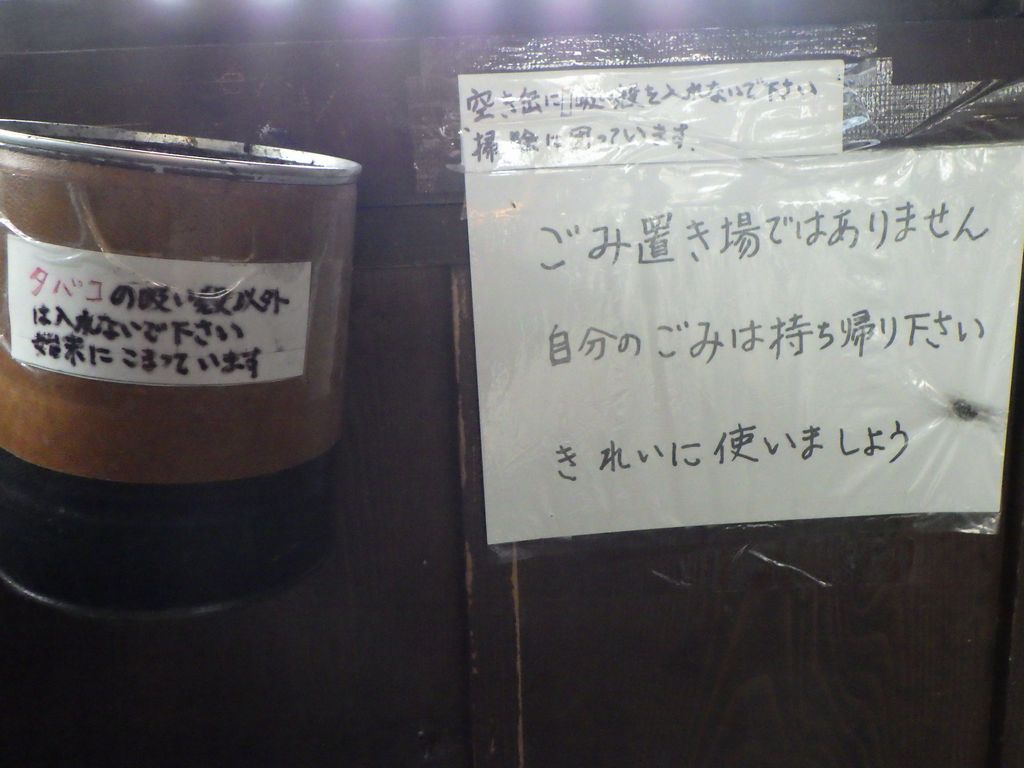 タバコの吸い殻以外
は入れないで下さい
始末にこまっています
空き缶に吸い殻を入れないで下さい
掃除に困っています。
ごみ置き場ではありません
自分のごみは持ち帰り下さい
きれいに使いましょう